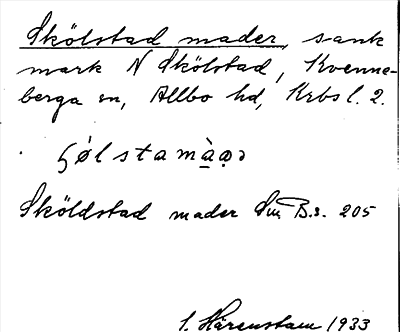 Skölstad mader, sank
mark N Skölstad, Kvenne-
berga sn, Allbo hd, Krbs l. 2.
ʂǿlstamà̱ọɔ
Sköldstad mader Sm B.s. 205
I. Härenstam 1933